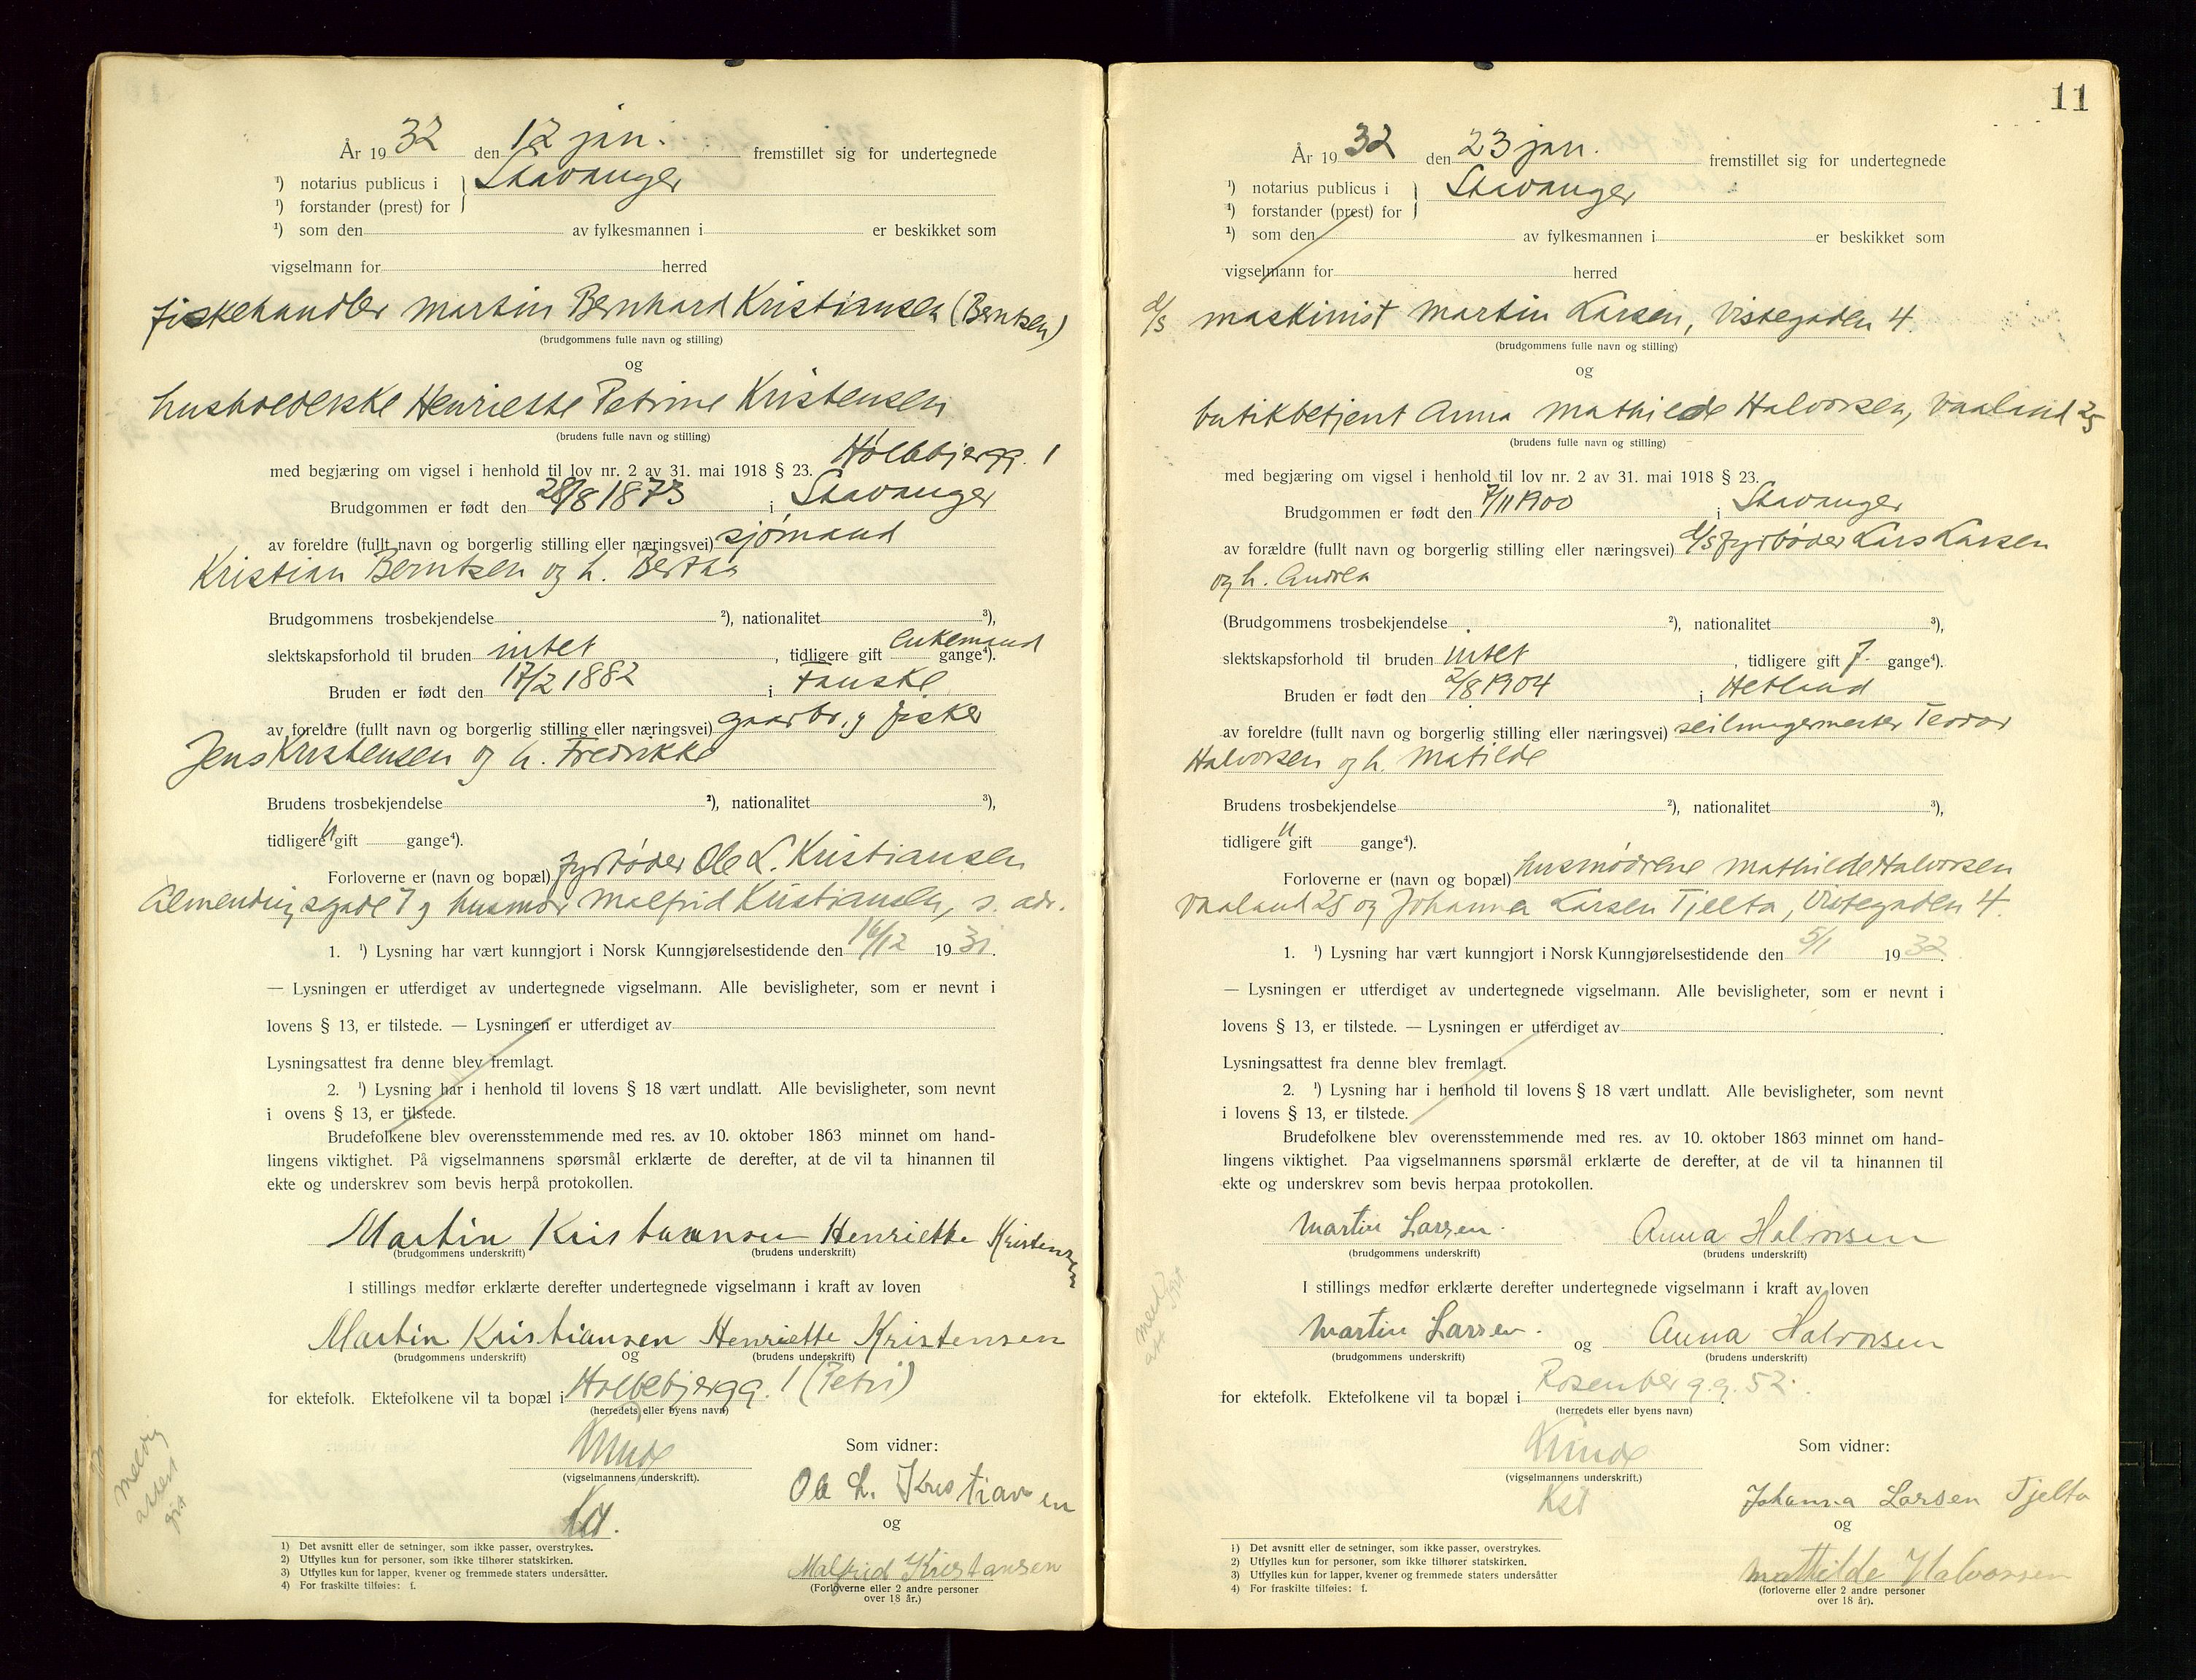 År 1932 den 12 jan. fremstillet sig for undertegnede
¹) notarius publicus i Stavanger
¹) forstander (prest) for
¹) som den av fylkesmannen i er beskikket som
vigselmann for herred
fiskehandler Martin Bernhard Kristiansen (Berntsen)
(brudgommens fulle navn og stilling)
og
husholderske Henriette Petrine Kristensen
(brudens fulle navn og stilling)
Holbebjergg. 1
med begjæring om vigsel i henhold til lov nr. 2 av 31. mai 1918 § 23.
Brudgommen er født den 28/8 1873 i Stavanger
av foreldre (fullt navn og borgerlig stilling eller næringsvei) sjømand
Kristian Berntsen og h. Berta
Brudgommens trosbekjendelse ²), nationalitet ³),
slektskapsforhold til bruden intet, tidligere gift enkemand gange⁴).
Bruden er født den 17/2 1882 i Fauske
av foreldre (fullt navn og borgerlig stilling eller næringsvei) gaarbr. og fisker
Jens Kristensen og h. Fredrikke
Brudens trosbekjendelse ²), nationalitet ³),
tidligere gift gange⁴).
Forloverne er (navn og bopæl) fyrbøder Ole L. Kristiansen
Almendingsgade 7 og husmor Malfrid Kristiansen, s. adr.
1. ¹) Lysning har vært kunngjort i Norsk Kunngjørelsestidende den 16/12 1931.
— Lysningen er utferdiget av undertegnede vigselmann. Alle bevisligheter, som er nevnt i
lovens § 13, er tilstede. — Lysningen er utferdiget av
Lysningsattest fra denne blev fremlagt.
2. ¹) Lysning har i henhold til lovens § 18 vært undlatt. Alle bevisligheter, som nevnt
i ovens § 13, er tilstede.
Brudefolkene blev overensstemmende med res. av 10. oktober 1863 minnet om hand-
lingens viktighet. På vigselmannens spørsmål erklærte de derefter, at de vil ta hinannen til
ekte og underskrev som bevis herpå protokollen.
Martin Kristiansen Henriette Kristensen
(brudgommens underskrift) (brudens underskrift)
I stillings medfør erklærte derefter undertegnede vigselmann i kraft av loven
Martin Kristiansen Henriette Kristensen
(brudgommens underskrift) og (brudens underskrift)
for ektefolk. Ektefolkene vil ta bopæl i Holbebjergg. 1 (Petri)
(herredets eller byens navn)
Som vidner:
(vigselmannens underskrift).
Ole L. Kristiansen
og
Malfrid Kristiansen
(Forloverne eller 2 andre personer
over 18 år.)
melding
attest
gitt
1) Det avsnitt eller de setninger, som ikke passer, overstrykes.
2) Utfylles kun for personer, som ikke tilhører statskirken.
3) Utfylles kun for lapper, kvener og fremmede staters undersåtter.
4) For fraskilte tilføies: f.
11
År 1932 den 23 jan. fremstillet sig for undertegnede
¹) notarius publicus i Stavanger
¹) forstander (prest) for
¹) som den av fylkesmannen i er beskikket som
vigselmann for herred
d/s maskinist Martin Larsen, Vistegaden 4.
(brudgommens fulle navn og stilling)
og
butikbetjent Anna Mathilde Halvorsen, Vaaland 25
(brudens fulle navn og stilling)
med begjæring om vigsel i henhold til lov nr. 2 av 31. mai 1918 § 23.
Brudgommen er født den 7/11 1900 i Stavanger
av forældre (fullt navn og borgerlig stilling eller næringsvei) d/s fyrbøder Lars Larsen
og h. Andrea
(Brudgommens trosbekjendelse ²), nationalitet ³),
slektskapsforhold til bruden intet, tidligere gift 7. gange⁴).
Bruden er født den 2/8 1904 i Hetland
av foreldre (fullt navn og borgerlig stilling eller næringsvei) seilmagermester Teodor
Halvorsen og h. Matilde
Brudens trosbekjendelse ²), nationalitet ³),
tidligere gift gange⁴).
Forloverne er (navn og bopæl) husmødrene Mathilde Halvorsen
Vaaland 25 og Johanna Larsen Tjelta, Vistegaden 4.
1. ¹) Lysning har vært kunngjort i Norsk Kunngjørelsestidende den 5/1 1932.
— Lysningen er utferdiget av undertegnede vigselmann. Alle bevisligheter, som er nevnt i
lovens § 13, er tilstede. — Lysningen er utferdiget av
Lysningsattest fra denne blev fremlagt.
2. ¹) Lysning har i henhold til lovens § 18 vært undlatt. Alle bevisligheter, som nevnt
i lovens § 13, er tilstede.
Brudefolkene blev overensstemmende med res. av 10. oktober 1863 minnet om hand-
lingens viktighet. Paa vigselmannens spørsmål erklærte de derefter, at de vil ta hinannen til
ekte og underskrev som bevis herpaa protokollen.
Martin Larsen. Anna Halvorsen
(brudgommens underskrift) (brudens underskrift)
I stillings medfør erklærte derefter undertegnede vigselmann i kraft av loven
Martin Larsen. og Anna Halvorsen
(brudgommens underskrift) (brudens underskrift)
for ektefolk. Ektefolkene vil ta bopæl i Rosenberg.g. 52.
(herredets eller byens navn)
Som vidner:
(vigselmannens underskrift.)
Kst
Johanna Larsen Tjelta
og
Mathilde Halvorsen
(forloverne eller 2 andre personer
over 18 år).
1) Det avsnitt eller de setninger, som ikke passer, overstrykes.
2) Utfylles kun for personer, som ikke tilhører statskirken.
3) Utfylles kun for lapper, kvener og fremmede staters undersåtter
4) For fraskilte tilføies: f.